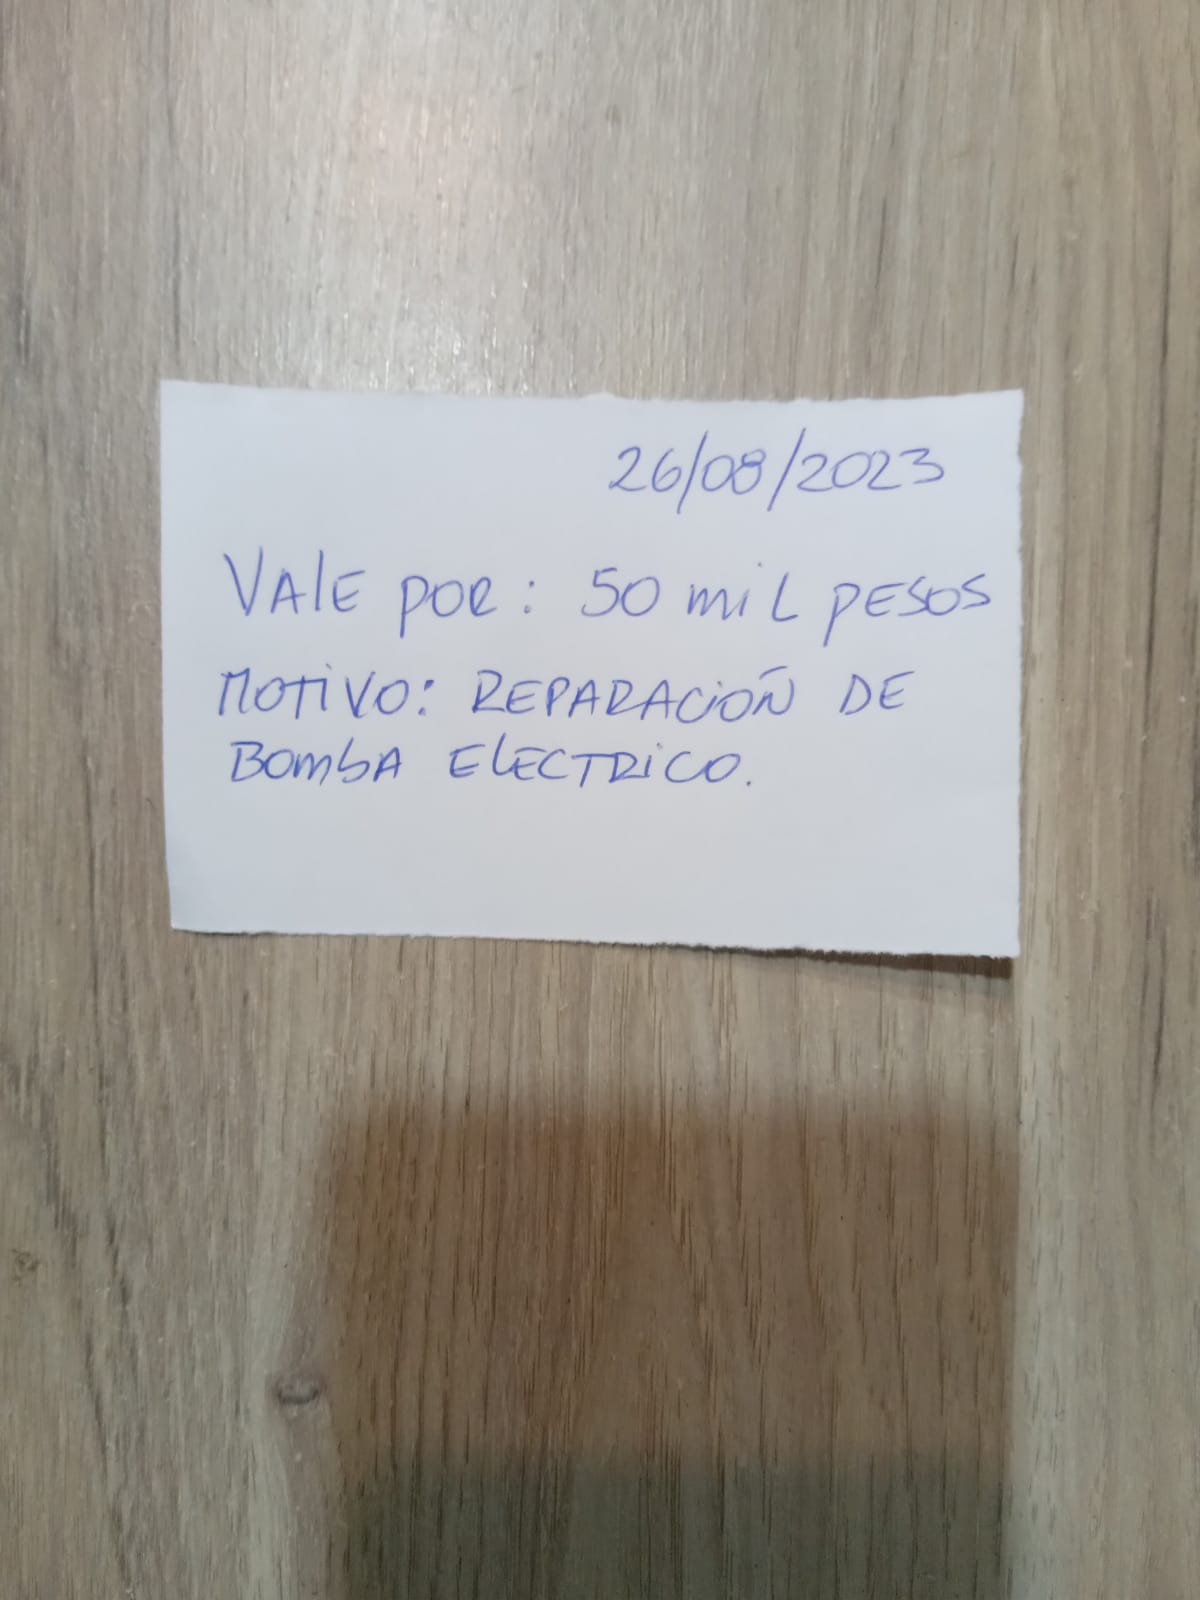 26/08/2023
VALE POR: 50 MIL PESOS
MOTIVO: REPARACIÓN DE
BOMBA ELECTRICO.